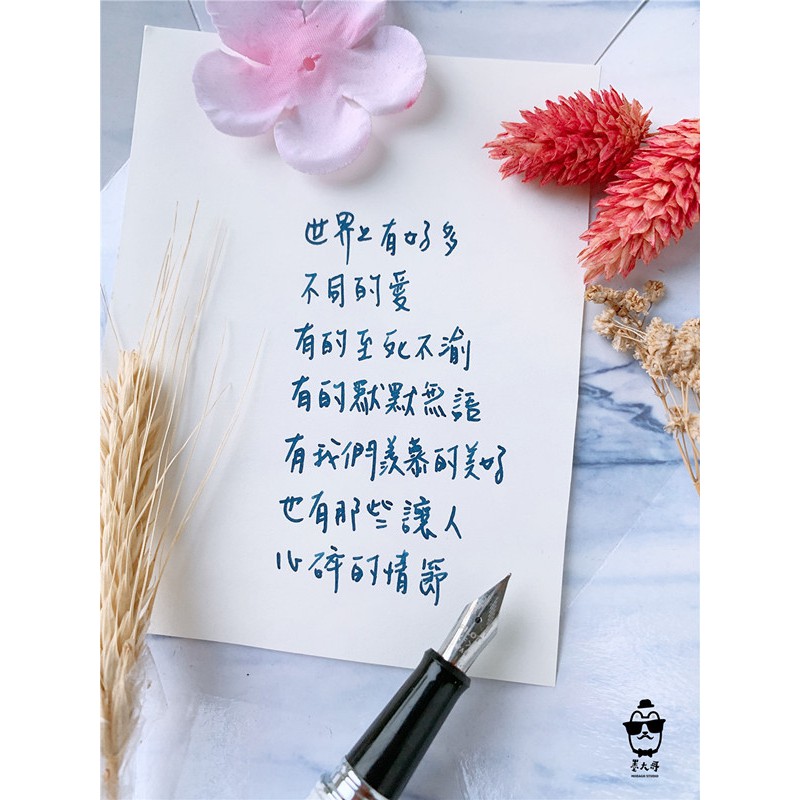 世界上有好多
不同的愛
有的至死不渝
有的默默無語
有我們羨慕的美好
也有那些讓人
心碎的情節
墨大哥